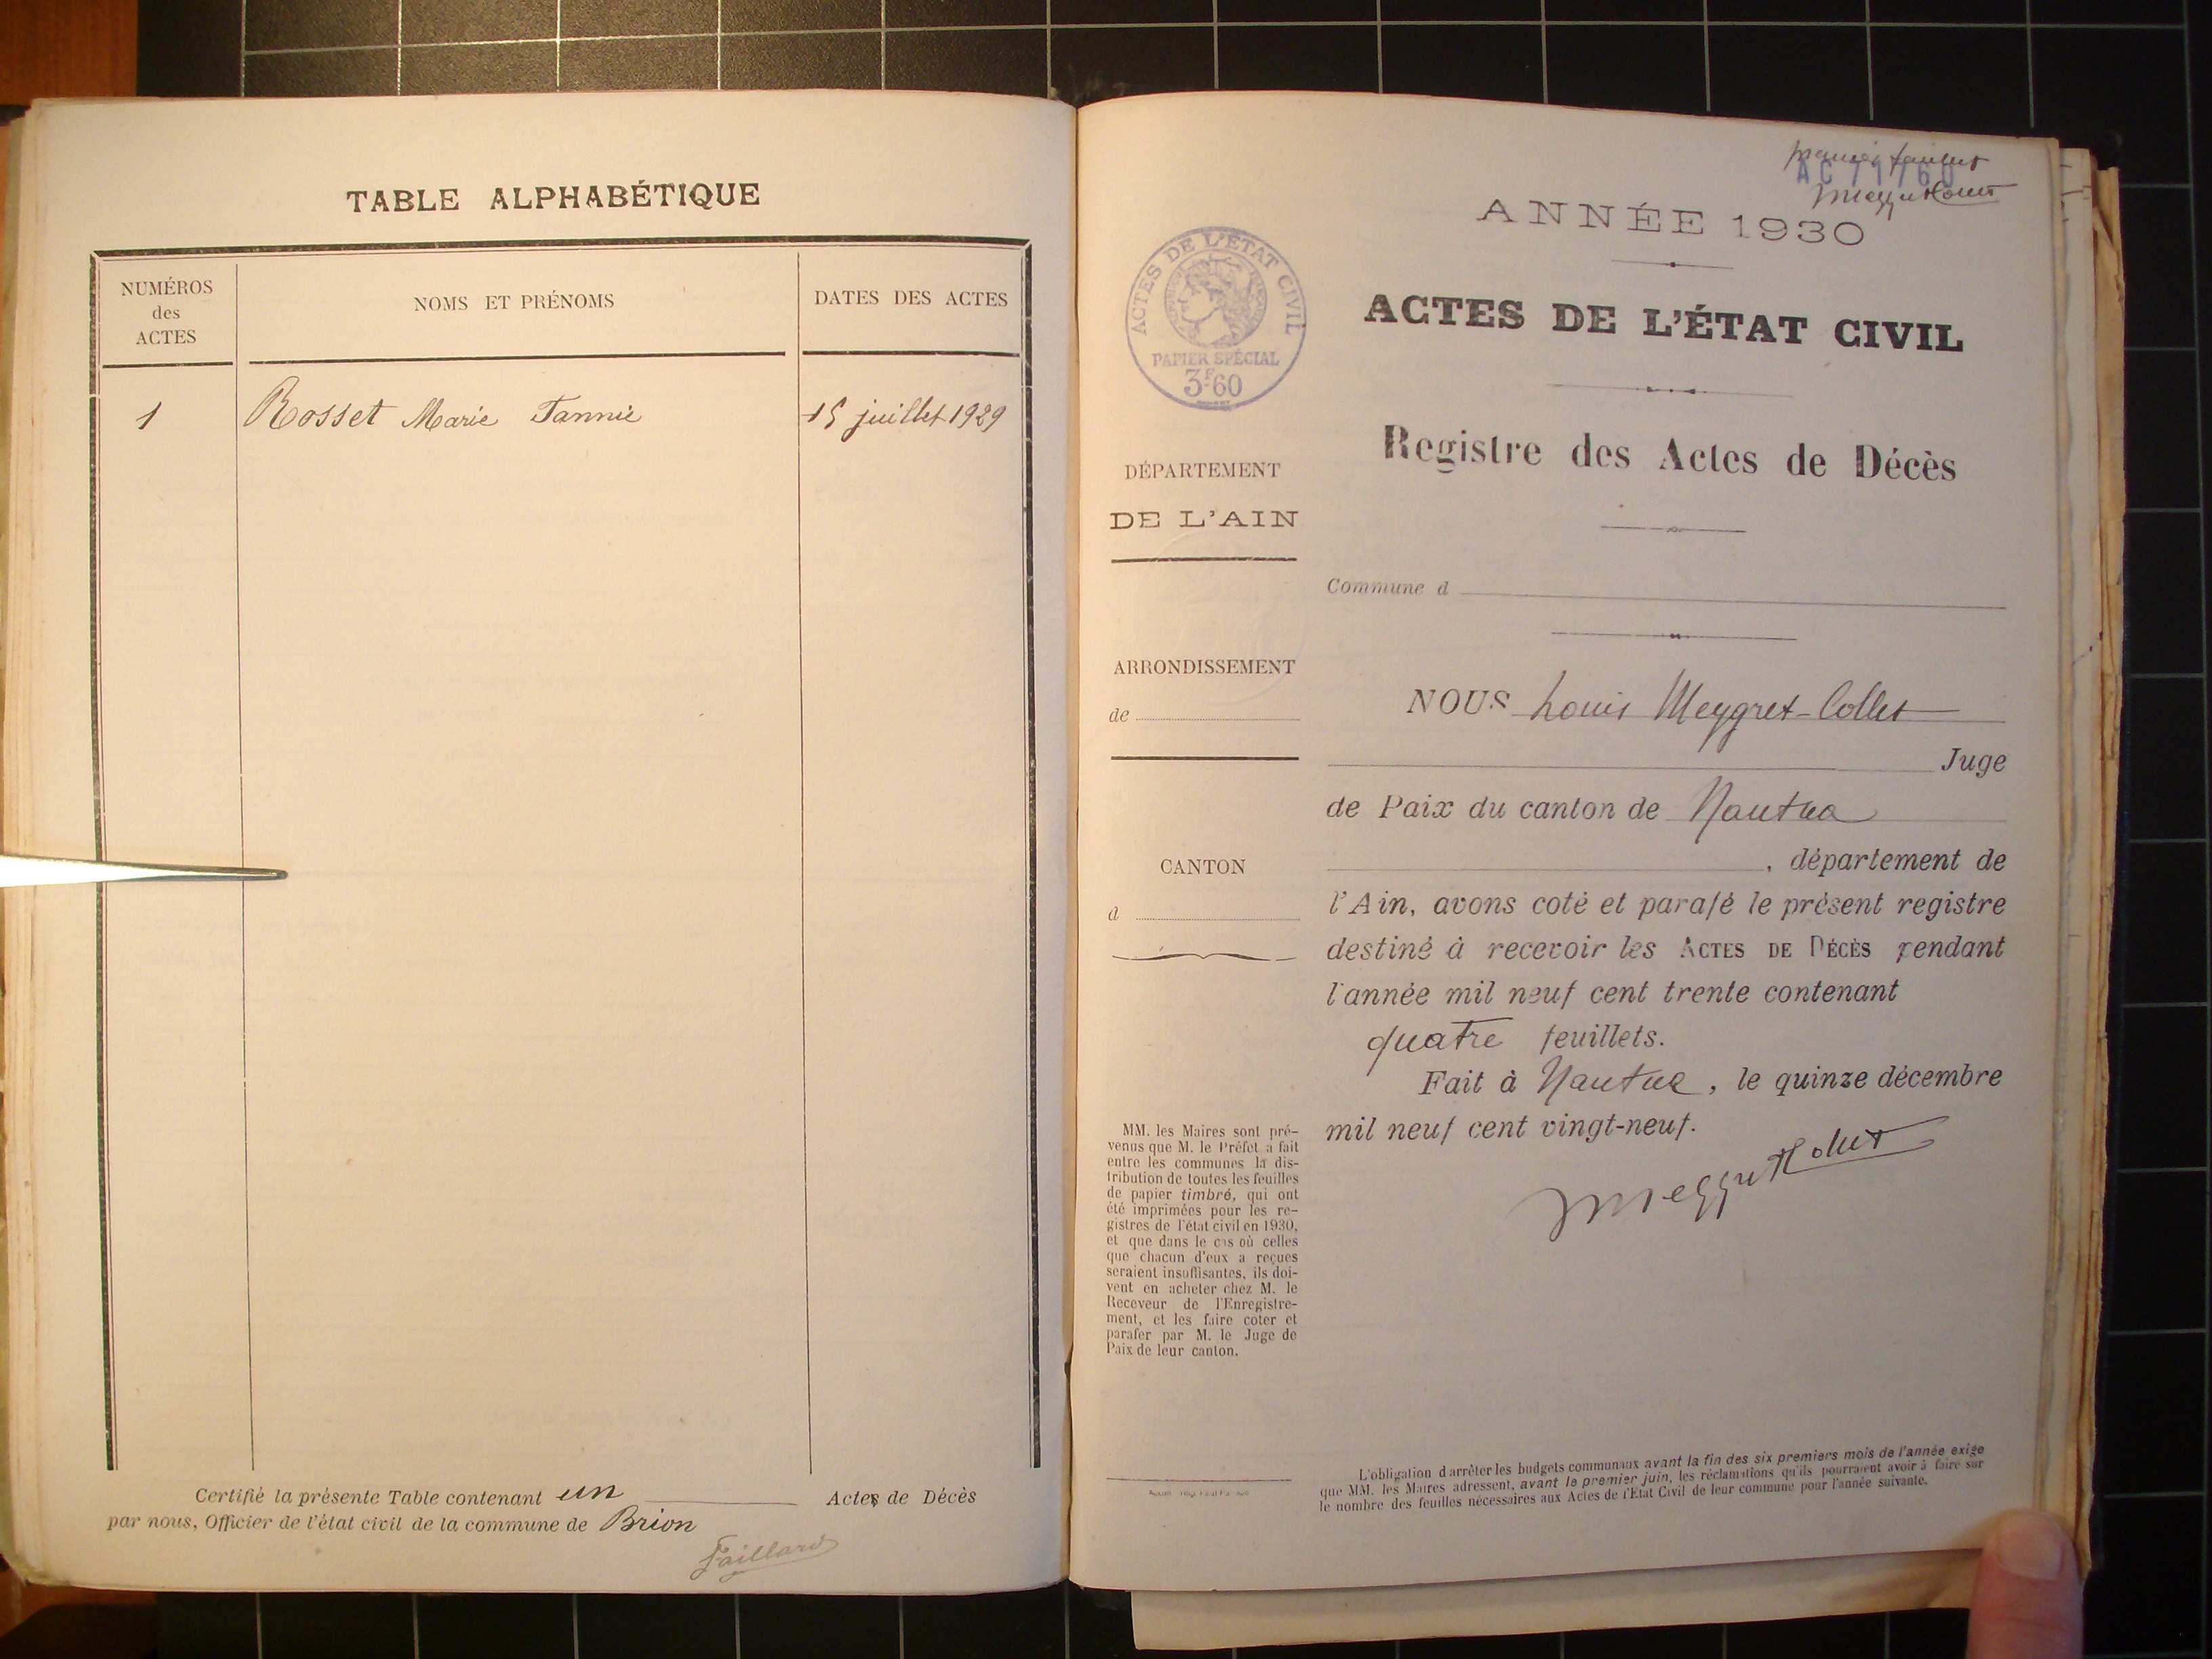 TABLE ALPHABÉTIQUE
NUMÉROS
des
ACTES
NOMS ET PRÉNOMS
DATES DES ACTES
1
Rosset Marie Fannie
15 juillet 1929
Certifié la présente Table contenant un Actes de Décès
par nous, Officier de l'état civil de la commune de Brion
Gaillard
premier feuillet
AC 71760
Meygret Collet
ANNÉE 1930
ACTES DE L'ÉTAT CIVIL
PAPIER SPÉCIAL
3F60
ACTES DE L'ÉTAT CIVIL
Registre des Actes de Décès
DÉPARTEMENT
DE L'AIN
Commune d
ARRONDISSEMENT
de
CANTON
d
NOUS Louis Meygret-Collet
Juge
de Paix du canton de Nantua
, département de
l'Ain, avons coté et parafé le présent registre
destiné à recevoir les ACTES DE DÉCÈS pendant
l'année mil neuf cent trente contenant
quatre feuillets.
Fait à Nantua, le quinze décembre
mil neuf cent vingt-neuf.
Meygret Collet
MM. les Maires sont pré-
venus que M. le Préfet a fait
entre les communes la dis-
tribution de toutes les feuilles
de papier timbré, qui ont
été imprimées pour les re-
gistres de l'état civil en 1930,
et que dans le cas où celles
que chacun d'eux a reçues
seraient insuffisantes, ils doi-
vent en acheter chez M. le
Receveur de l'Enregistre-
ment, et les faire coter et
parafer par M. le Juge de
Paix de leur canton.
L'obligation d'arrêter les budgets communaux avant la fin des six premiers mois de l'année exige
que MM. les Maires adressent, avant le premier juin, les réclamations qu'ils pourraient avoir à faire sur
le nombre des feuilles nécessaires aux Actes de l'État Civil de leur commune pour l'année suivante.